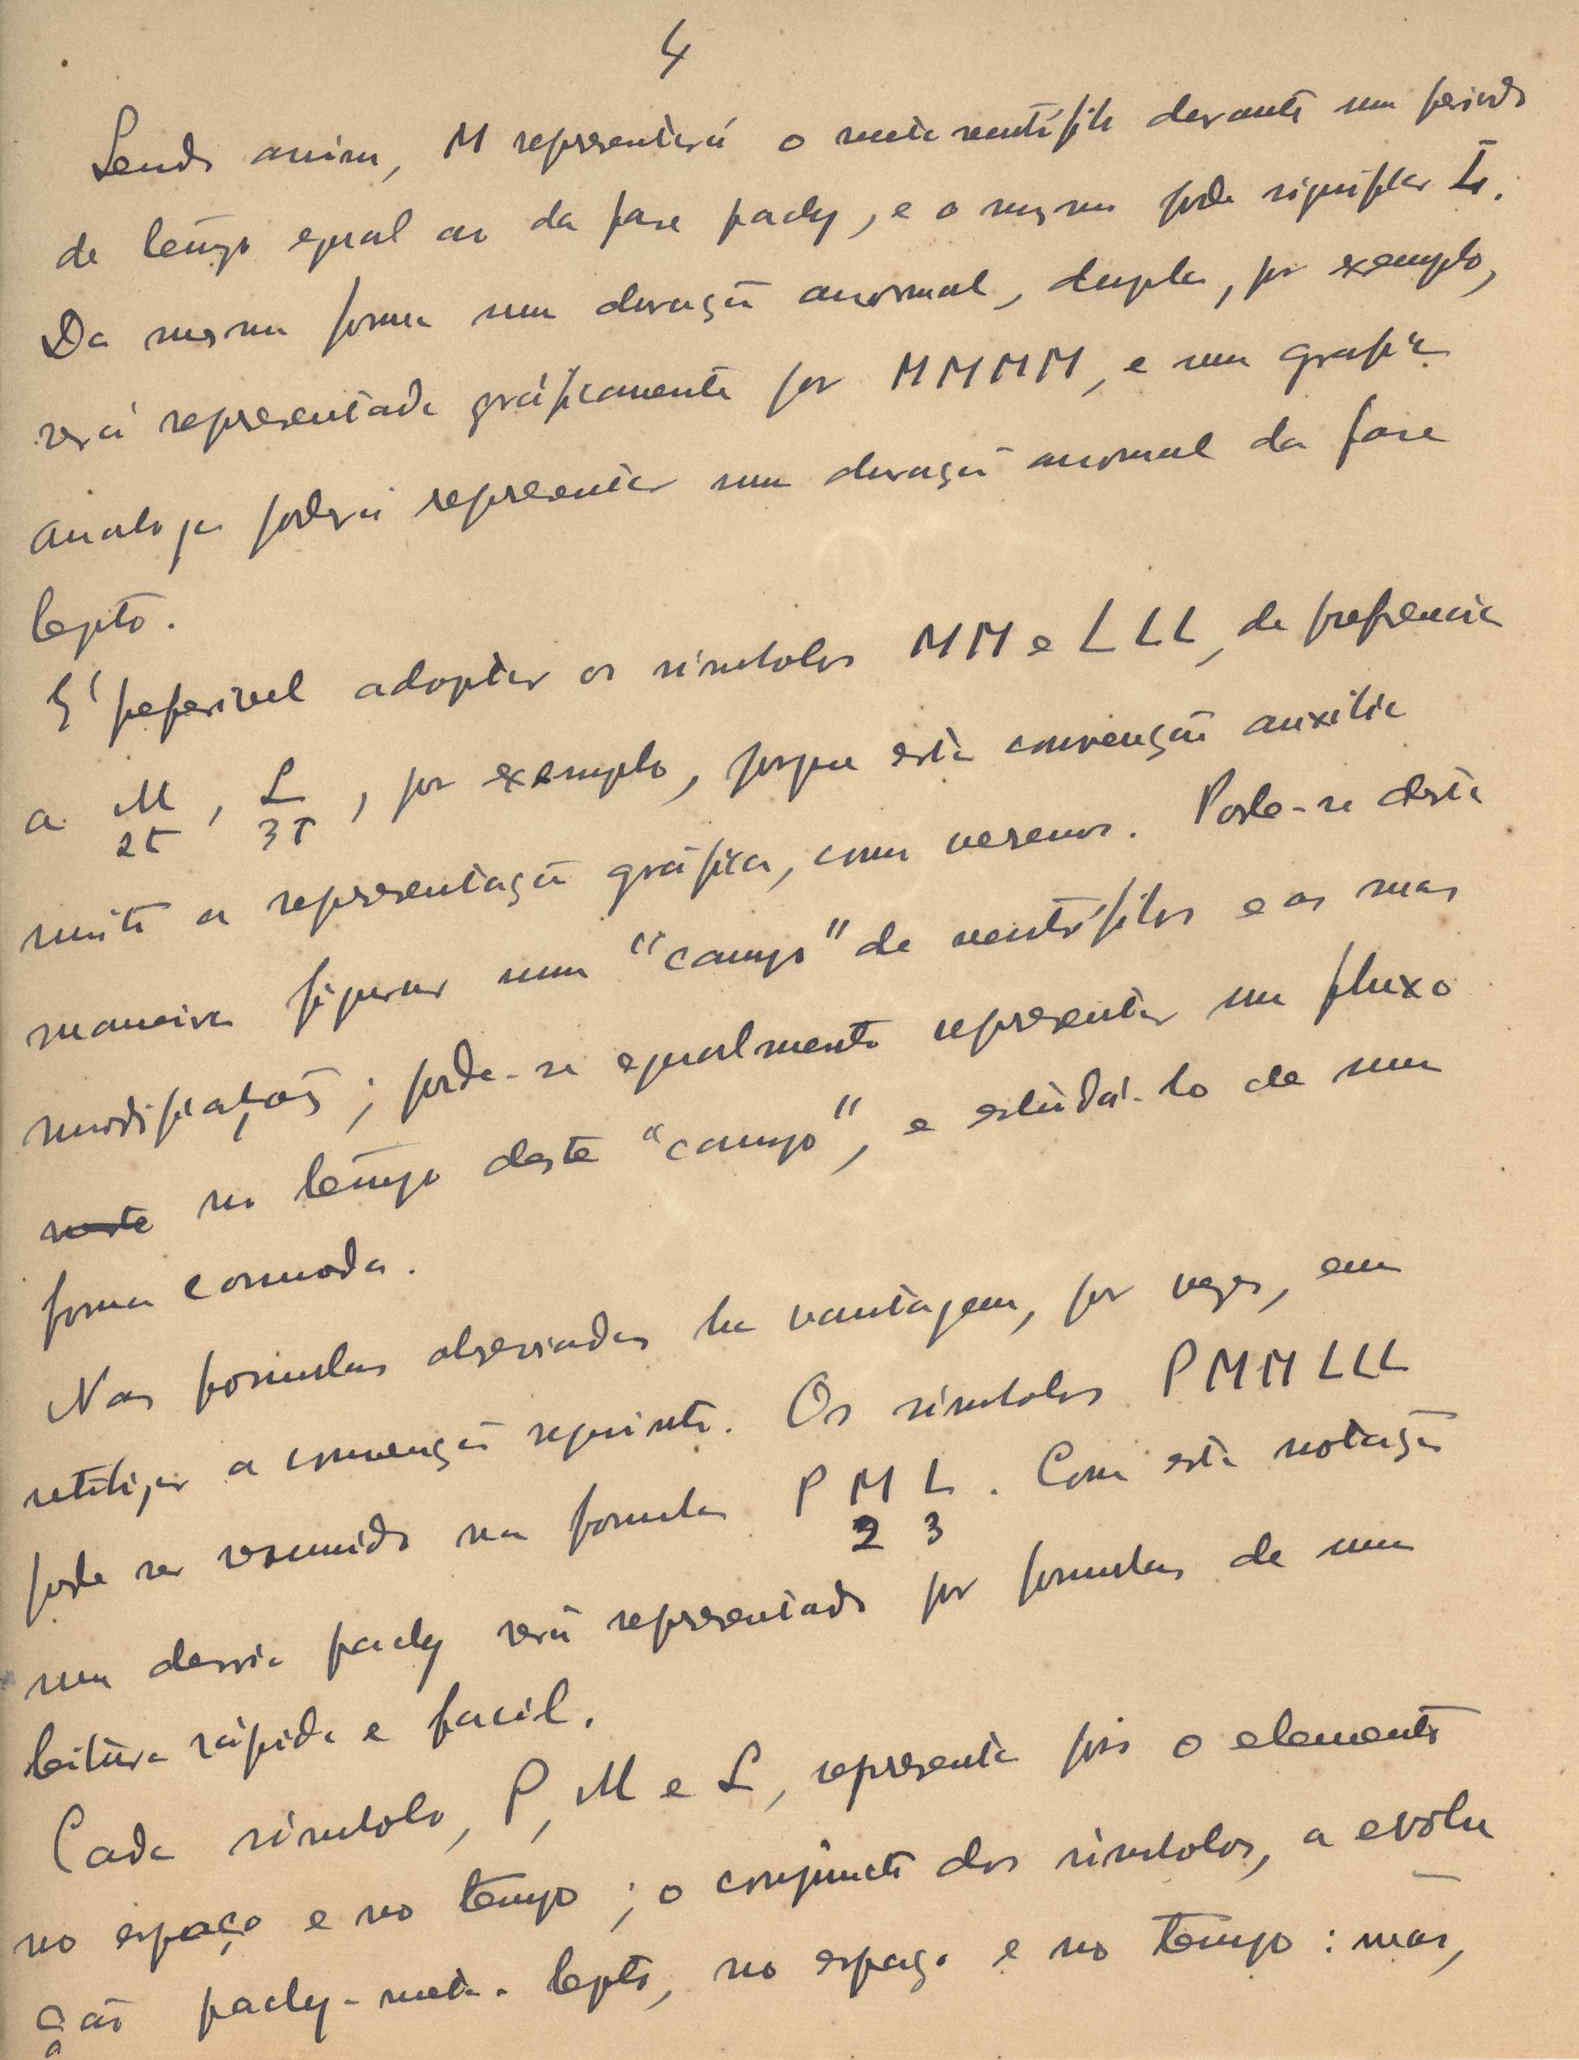 4
Sendo assim, M representará o meta neutrófilo durante um periodo
de tempo egual ao da fase pachy, e o mesmo pode significar L.
Da mesma forma uma duração anormal, dupla, por exemplo,
será representada gráficamente por MMMM, e uma grafia
analoga poderá representar uma duração anormal da fase
lepto.
E' preferivel adoptar os simbolos MM e LLL, de preferencia
a M, L, por exemplo, porque esta convenção auxilia
2t 3t
muito a representação gráfica, como veremos. Pode-se desta
maneira figurar um "campo" de neutrófilos e as suas
modificações; pode-se egualmente representar um fluxo
no tempo deste "campo", e estudá-lo de uma
forma commoda.
Nas formulas abreviadas ha vantagem, por vezes, em
utilizar a convenção seguinte. Os simbolos PMMLLL
pode ser resumido na formula P M L. Com esta notação
2 3
um desvio pachy será representado por formulas de uma
leitura rápida e facil.
Cada simbolo, P, M e L, representa pois o elemento
no espaço e no tempo; o conjuncto dos simbolos, a evolu
ção pachy-meta-lepto, no espaço e no tempo: mas,
a